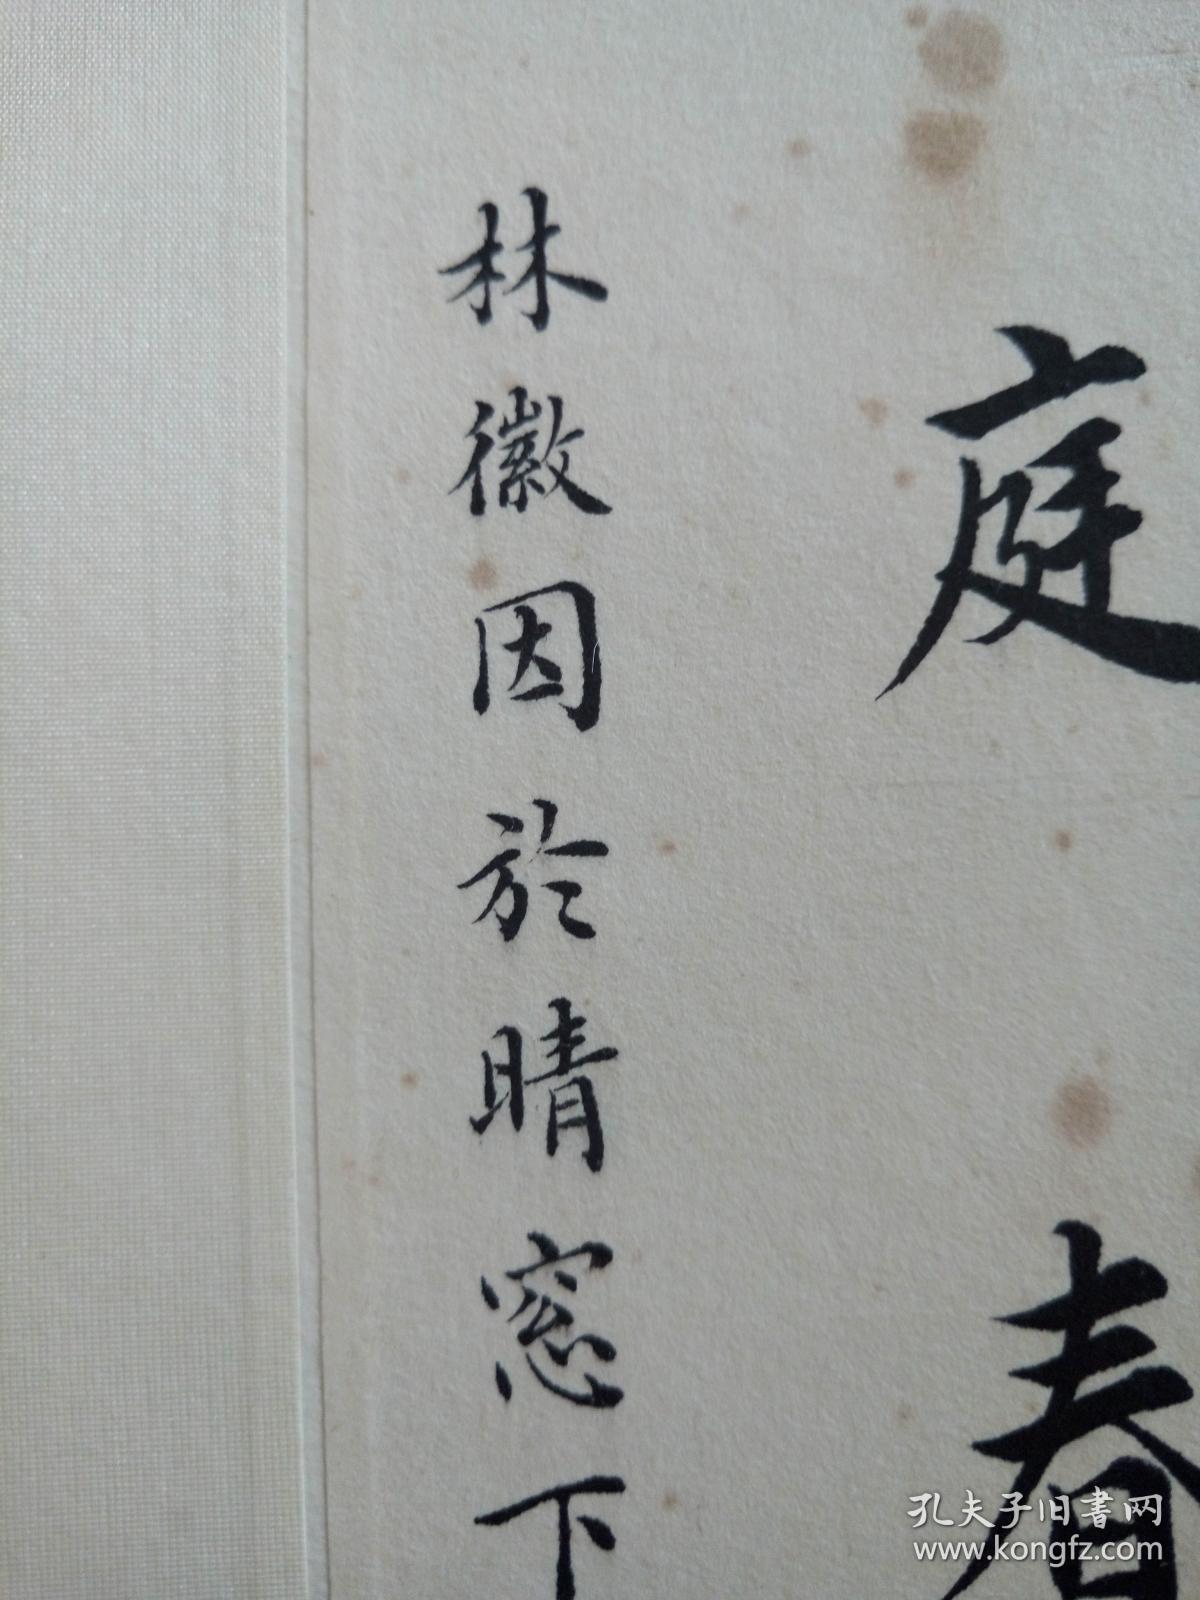 庭春
林徽因於晴窓下
孔夫子旧书网
www.kongfz.com